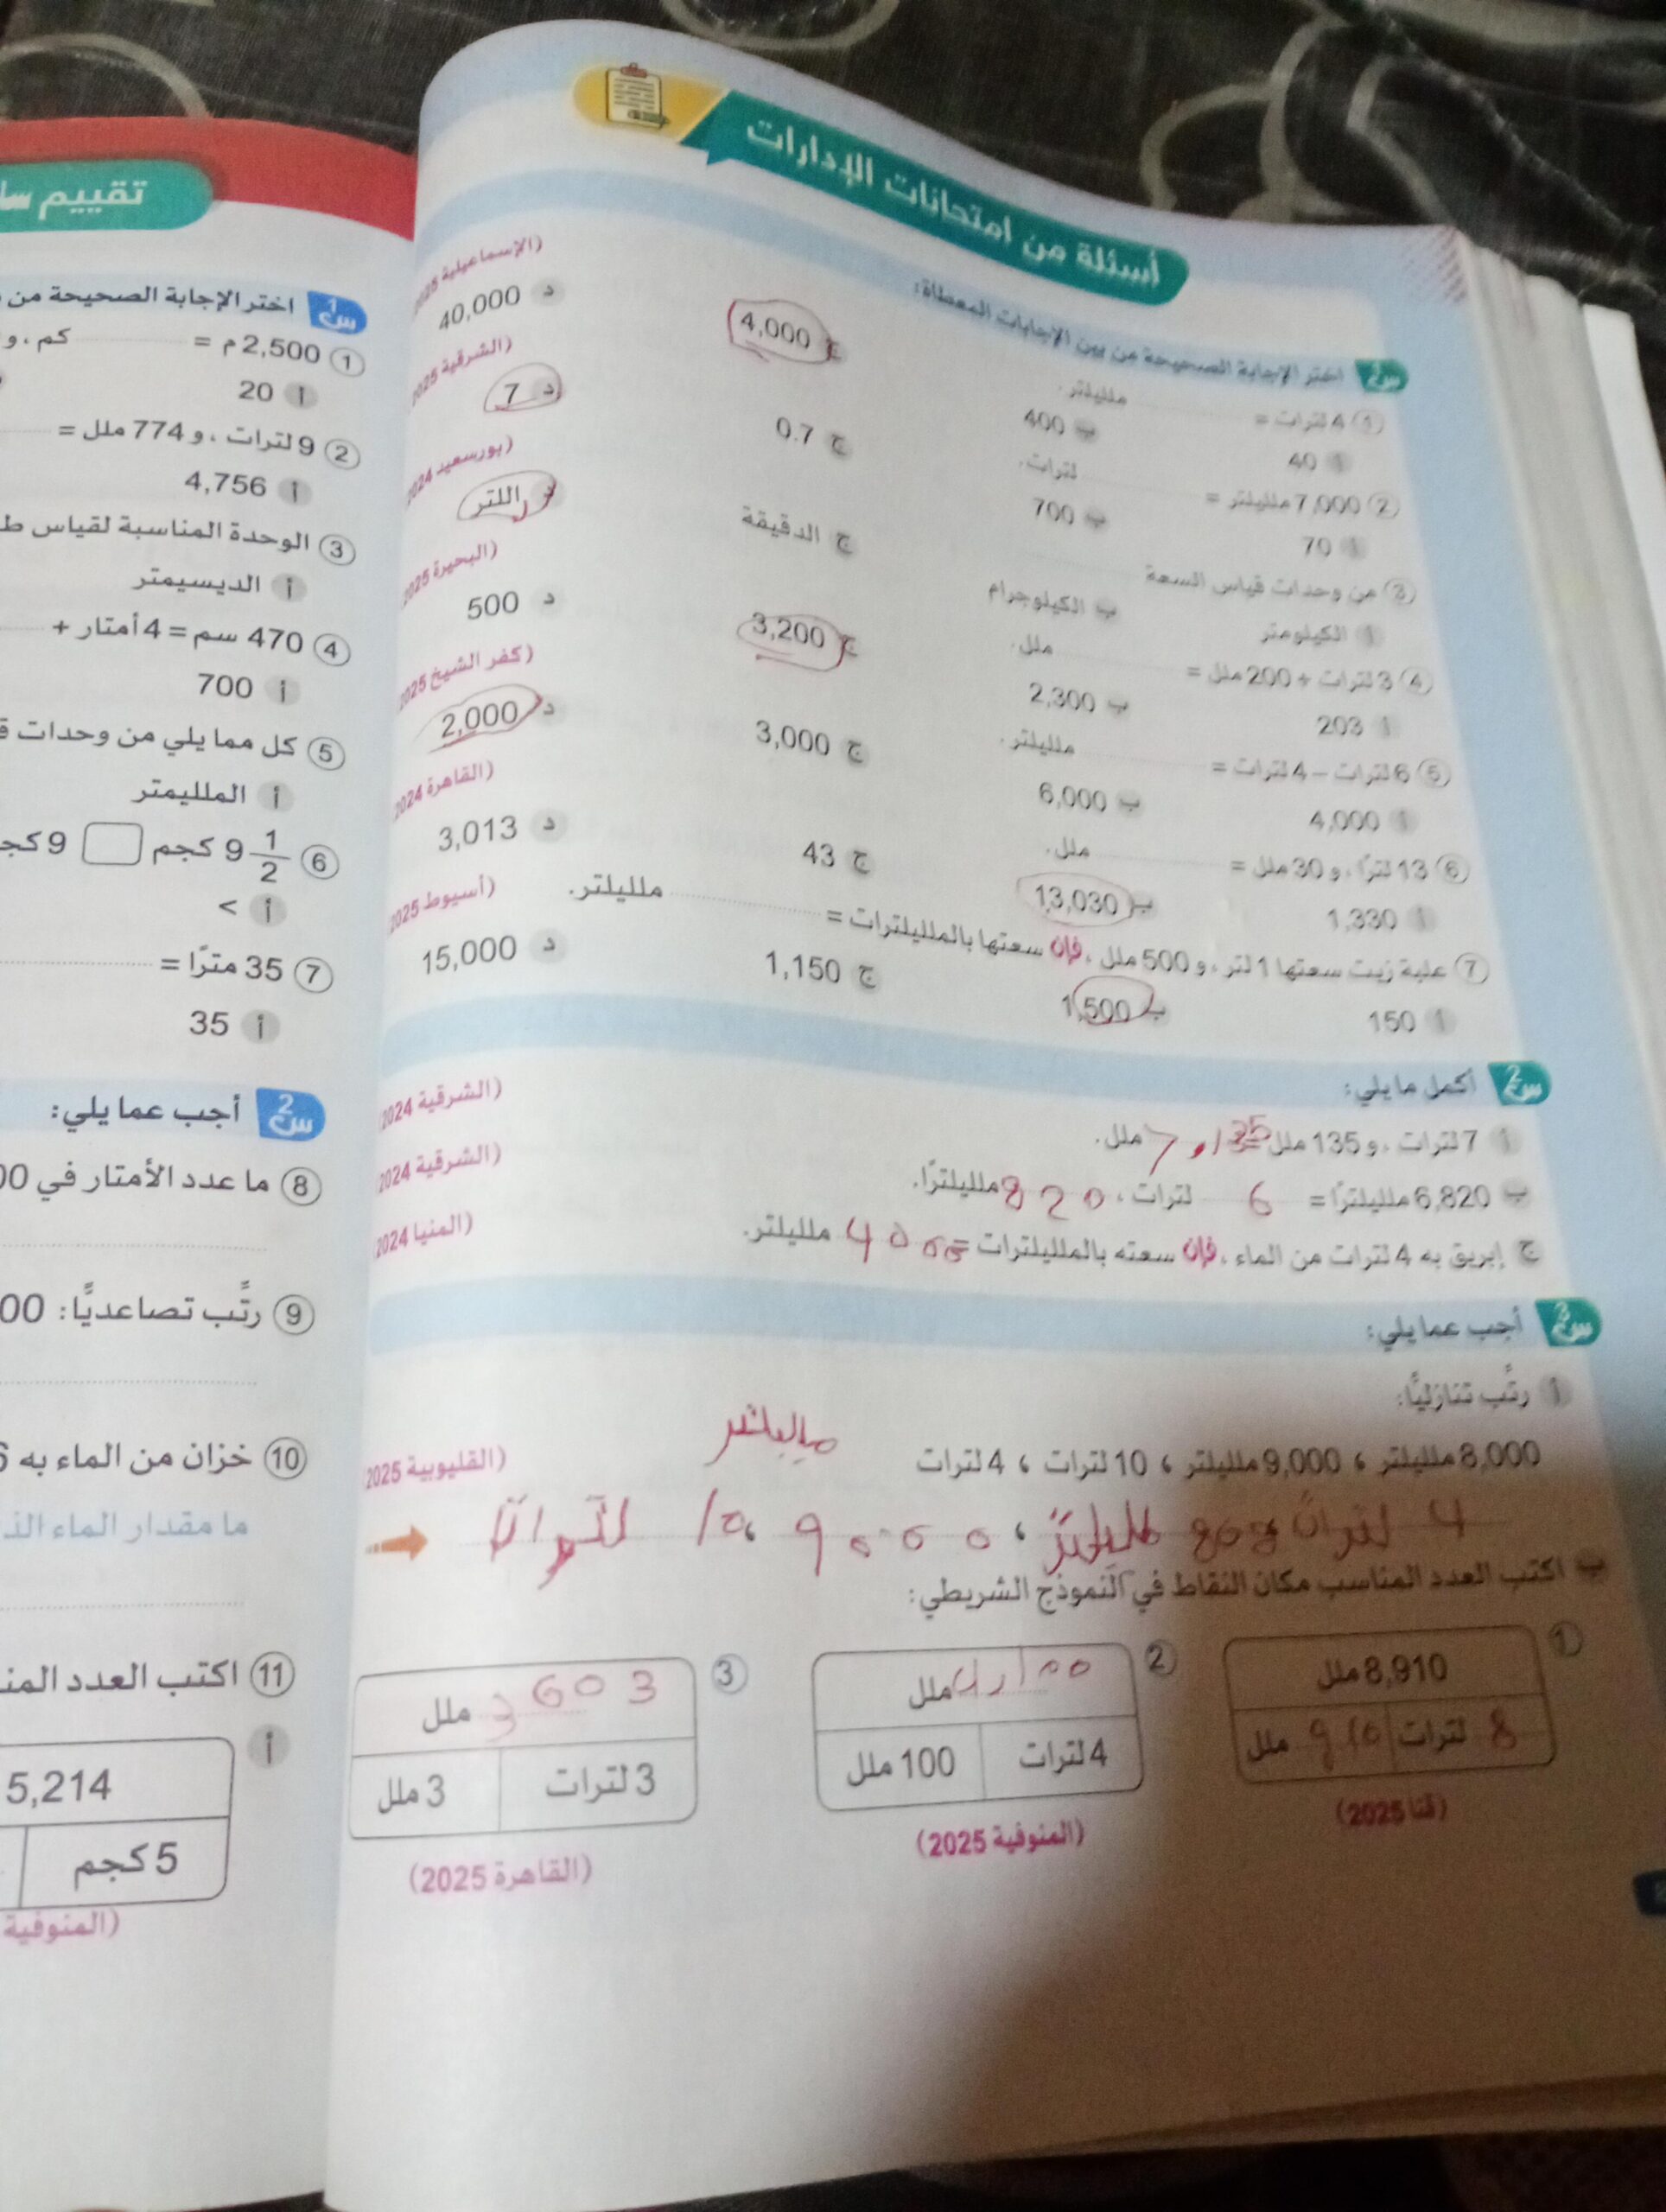 أسئلة من امتحانات الإدارات
س1 اختر الإجابة الصحيحة من بين الإجابات المعطاة:
① 4 لترات = ........ ملليلتر. (الإسماعيلية 2025
أ 40 ب 400 ج 4,000 د 40,000
② 7,000 ملليلتر = ........ لترات. (الشرقية 2025
أ 70 ب 700 ج 0.7 د 7
③ من وحدات قياس السعة ........ (بورسعيد 2024
أ الكيلومتر ب الكيلوجرام ج الدقيقة د اللتر
④ 3 لترات + 200 ملل = ........ ملل. (البحيرة 2025
أ 203 ب 2,300 ج 3,200 د 500
⑤ 6 لترات – 4 لترات = ........ ملليلتر. (كفر الشيخ 2025
أ 4,000 ب 6,000 ج 3,000 د 2,000
⑥ 13 لترًا، و 30 ملل = ........ ملل. (القاهرة 2024
أ 1,330 ب 13,030 ج 43 د 3,013
⑦ علبة زيت سعتها 1 لتر، و 500 ملل، فإن سعتها بالملليلترات = ........ ملليلتر. (أسيوط 2025
أ 150 ب 1,500 ج 1,150 د 15,000
س2 أكمل ما يلي:
أ 7 لترات، و 135 ملل = 7,135 ملل. (الشرقية 2024
ب 6,820 ملليلترًا = 6 لترات، 820 ملليلترًا. (الشرقية 2024
ج إبريق به 4 لترات من الماء، فإن سعته بالملليلترات = 4000 ملليلتر. (المنيا 2024
س3 أجب عما يلي:
أ رتِّب تنازليًّا:
8,000 ملليلتر ، 9,000 ملليلتر ، 10 لترات ، 4 لترات (القليوبية 2025
4 لترات ملليلتر ، 9000 ، 10 لترات
ب اكتب العدد المناسب مكان النقاط في النموذج الشريطي:
① 8,910 ملل
8 لترات 910 ملل
(قنا 2025)
② 4,100 ملل
4 لترات 100 ملل
(المنوفية 2025)
③ ملل
3 لترات 3 ملل
(القاهرة 2025)
تقييم
س1 اختر الإجابة الصحيحة من
① 2,500 م = ........ كم، و
أ 20
② 9 لترات، و 774 ملل =
أ 4,756
③ الوحدة المناسبة لقياس
أ الديسيمتر
④ 470 سم = 4 أمتار +
أ 700
⑤ كل مما يلي من وحدات
أ الملليمتر
⑥ 9 1/2 كجم □ 9
أ >
⑦ 35 مترًا =
أ 35
س2 أجب عما يلي:
⑧ ما عدد الأمتار في
⑨ رتِّب تصاعديًّا:
⑩ خزان من الماء به
ما مقدار الماء
⑪ اكتب العدد
أ 5,214
5 كجم
(المنوفية